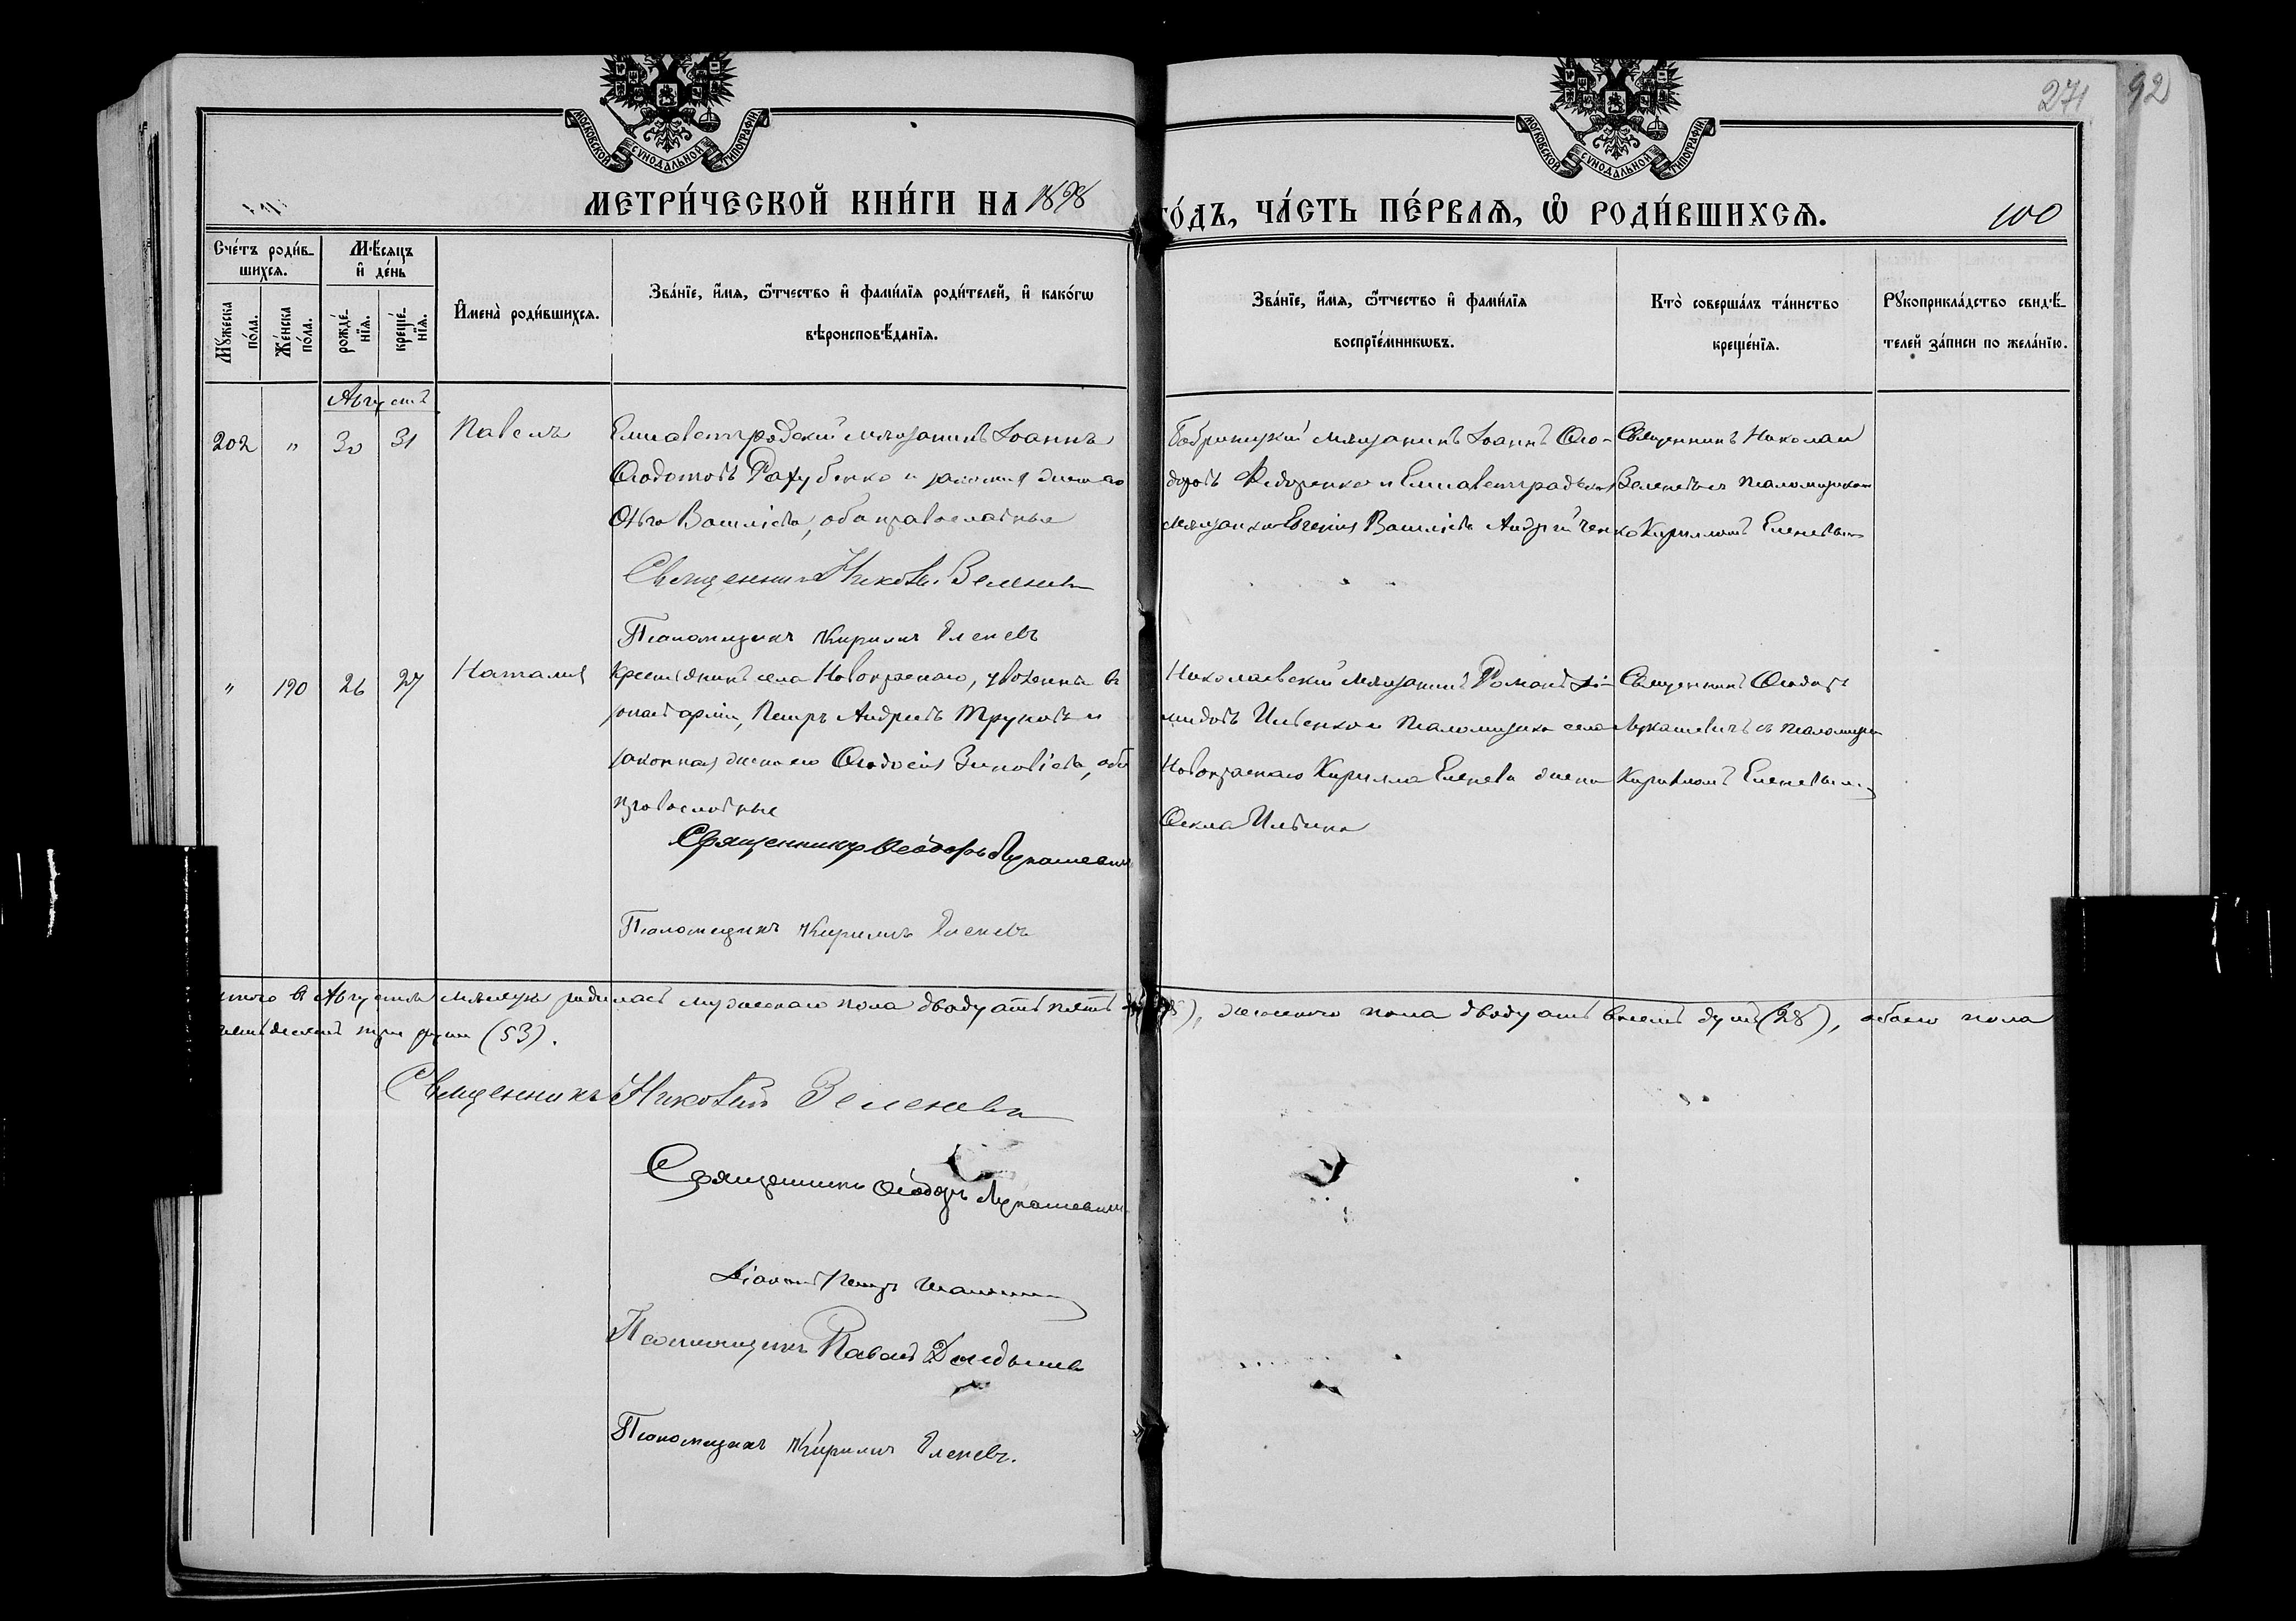 МОСКОВСКОЙ СУНОДАЛЬНОЙ ТИПОГРАФІИ
МОСКОВСКОЙ СУНОДАЛЬНОЙ ТИПОГРАФІИ
271
92
МЕТРИ́ЧЕСКОЙ КНИ́ГИ НА 1898
ГО́ДЪ, ЧА́СТЬ ПЕ́РВАѦ, Ѡ҆ РОДИ́ВШИХСѦ.
100
Сче́тъ роди́в-
шихсѧ.
Мѣ́сѧцъ
и҆ де́нь
Мꙋ́жеска по́ла.
Же́нска по́ла.
рожде́-нїѧ.
креще́-нїѧ.
И҆мена̀ роди́вшихсѧ.
Зва́нїе, и҆́мѧ, ѻ҆́тчество и҆ фами́лїѧ роди́телей, и҆ како́гѡ
вѣроисповѣ́данїѧ.
Зва́нїе, и҆́мѧ, ѻ҆́тчество и҆ фами́лїѧ
воспрїе́мникѡвъ.
Кто̀ соверша́лъ та́инство
креще́нїѧ.
Рꙋкоприкла́дство свидѣ́-
телей за́писи по жела́нїю.
Августъ
202 " 30 31 Павелъ
Елисаветградскій мѣщанинъ Іоаннъ
Ѳеодотовъ и законная жена его
Васильева, оба православные
Священникъ Николай Зеленевъ
Псаломщикъ Кириллъ Еленевъ
Бобринецкій мѣщанинъ Іоаннъ Ѳео-
доровъ Федоренко и Елисаветградская
мѣщанка Евгенія Васильева Андрейченко
Священникъ Николай
Зеленевъ съ псаломщикомъ
Кирилломъ Еленевымъ
" 190 26 27 Наталія
Крестьянинъ села Новопражскаго, уволенный въ
запасъ арміи, Петръ Андреевъ Труновъ и
законная жена его Ѳеодосія Зиновіева, оба
православные
Священникъ Ѳеодоръ Лукашевичъ
Псаломщикъ Кириллъ Еленевъ
Николаевскій мѣщанинъ Романъ Діо-
мидовъ Ильенко и псаломщика села
Новопражскаго Кирилла Еленева жена
Ѳекла Ильина
Священникъ Ѳеодоръ
Лукашевичъ съ псаломщикомъ
Кирилломъ Еленевымъ
Итого въ Августѣ мѣсяцѣ родилось мужескаго пола двадцать пять душъ (25), женскаго пола двадцать восемь душъ (28), обоего пола
пятьдесятъ три души (53).
Священникъ Николай Зеленевъ
Священникъ Ѳеодоръ Лукашевичъ
Діаконъ Петръ
Псаломщикъ Павелъ
Псаломщикъ Кириллъ Еленевъ.